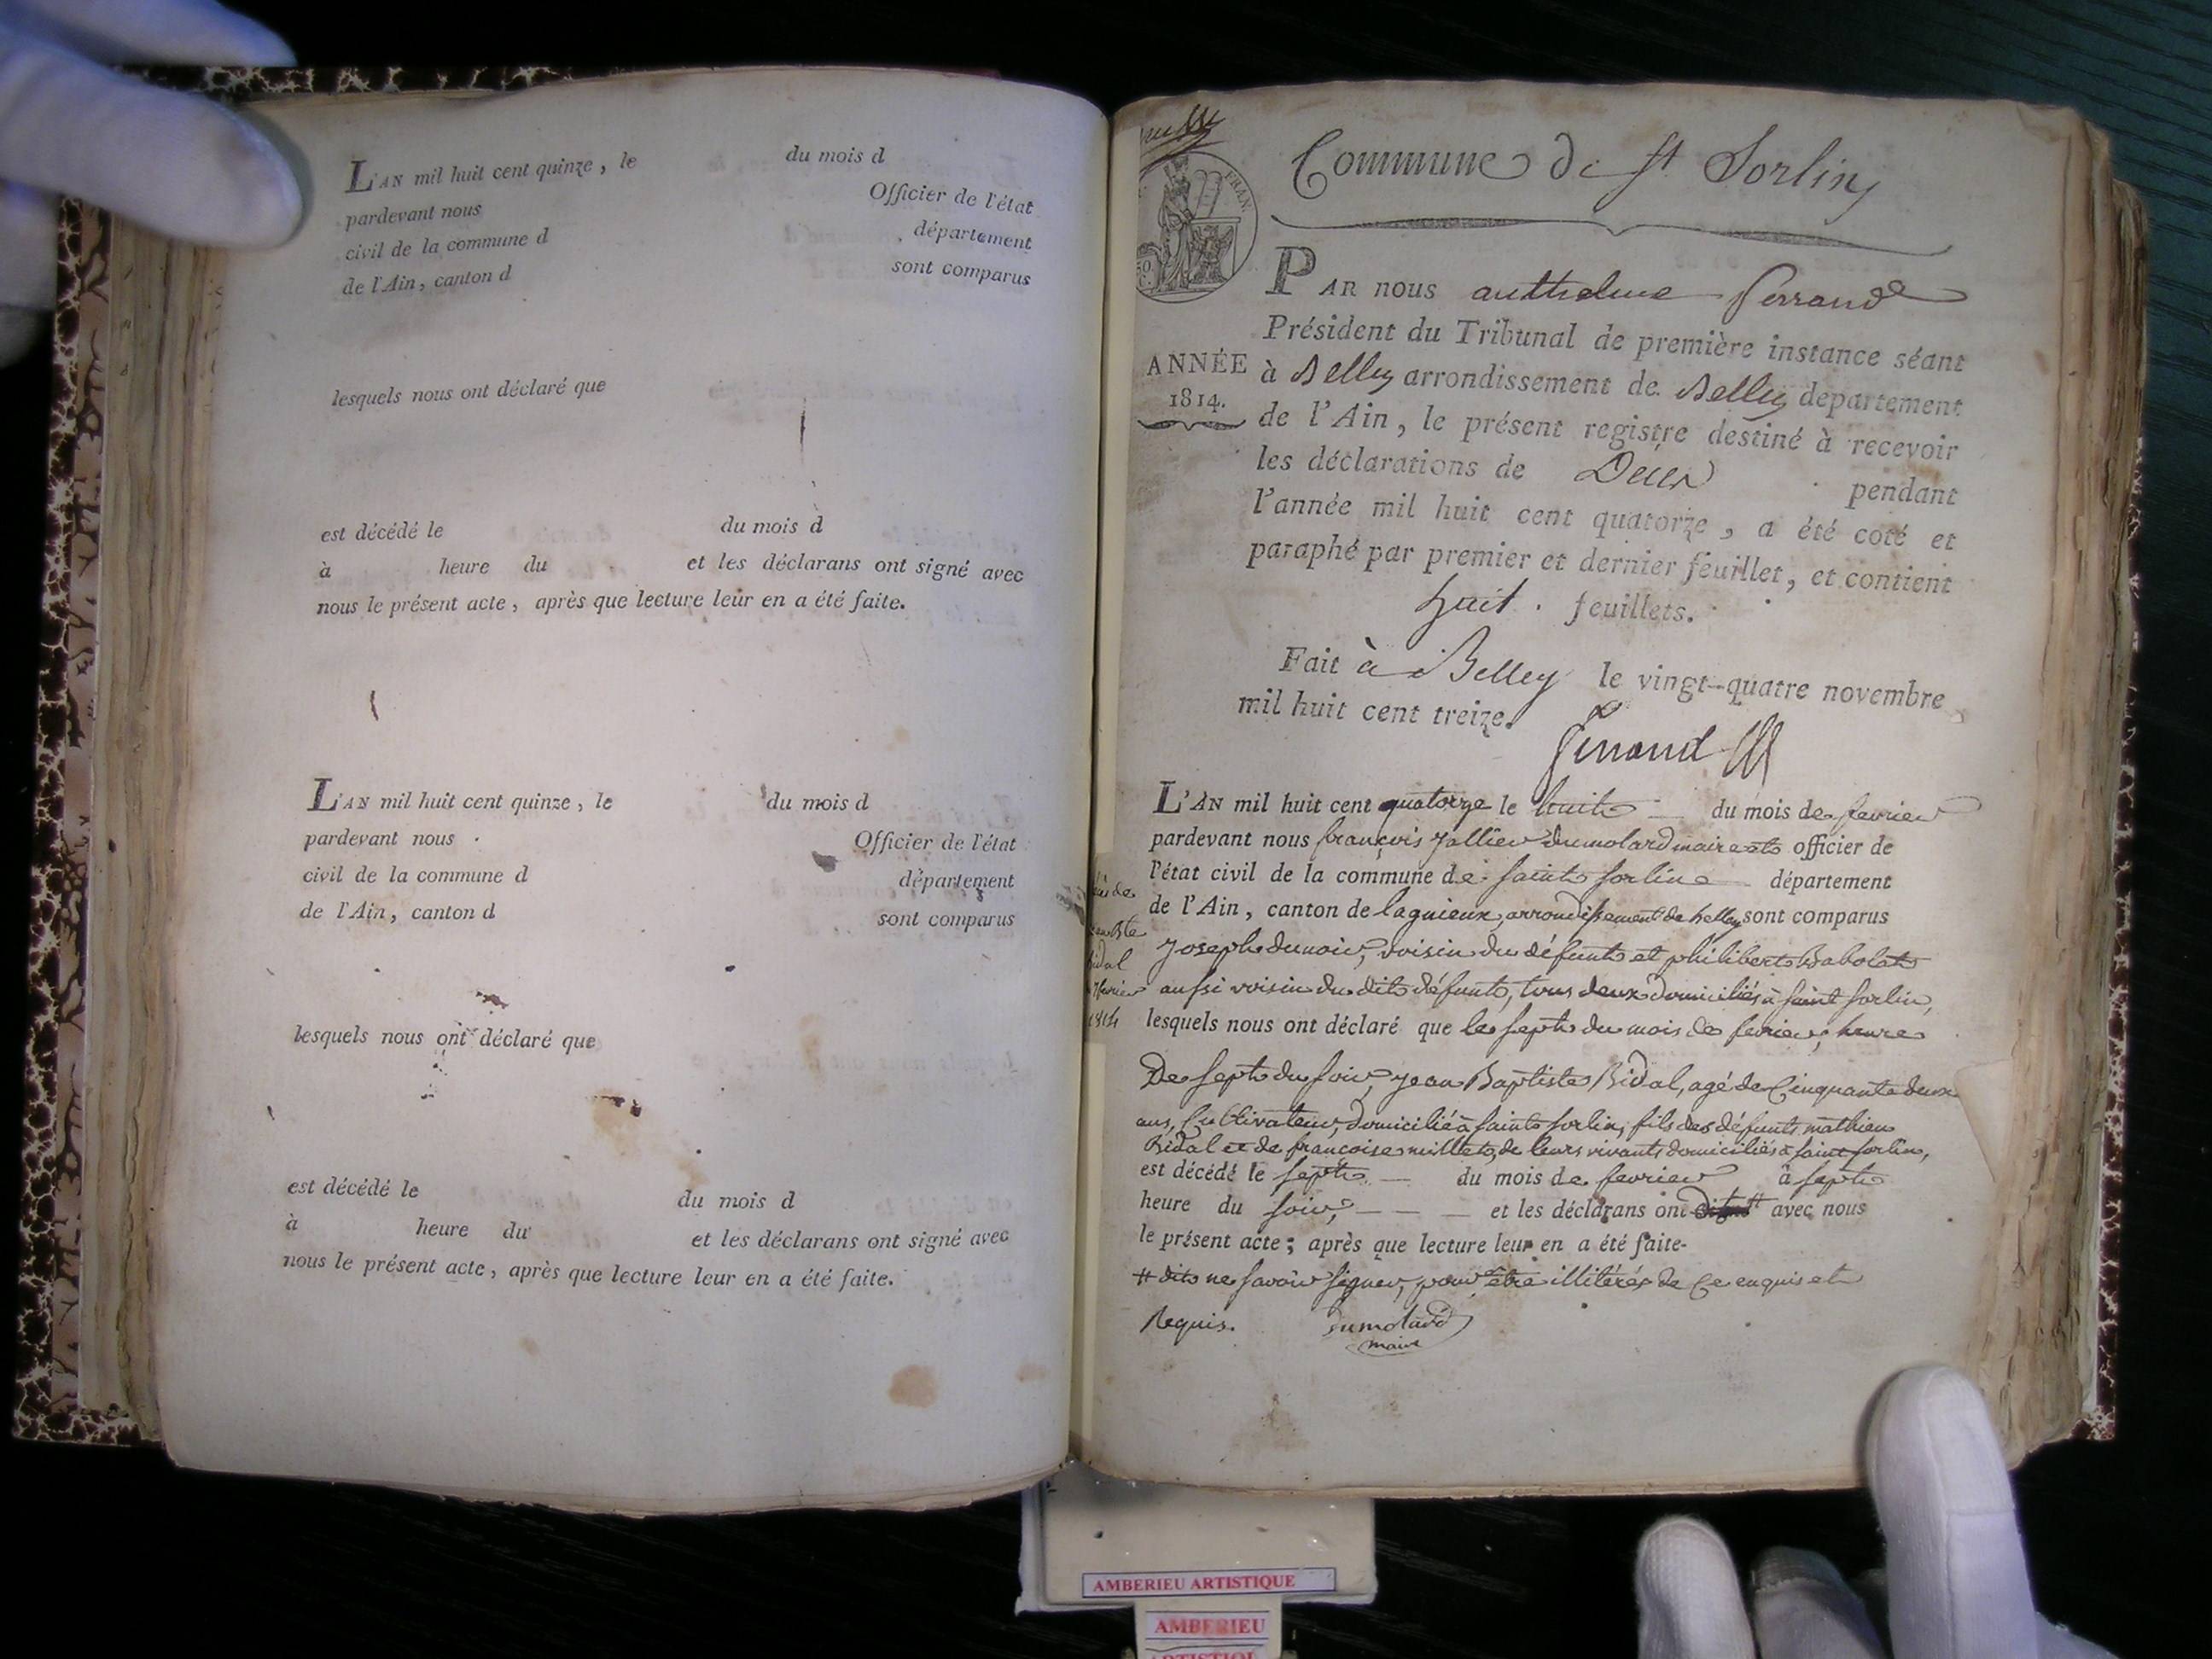 L'AN mil huit cent quinze, le du mois d
pardevant nous Officier de l'état
civil de la commune d , département
de l'Ain, canton d sont comparus
lesquels nous ont déclaré que
est décédé le du mois d
à heure du et les déclarans ont signé avec
nous le présent acte, après que lecture leur en a été faite.
L'AN mil huit cent quinze, le du mois d
pardevant nous Officier de l'état
civil de la commune d département
de l'Ain, canton d sont comparus
lesquels nous ont déclaré que
est décédé le du mois d
à heure du et les déclarans ont signé avec
nous le présent acte, après que lecture leur en a été faite.
Commune de st Sorlin
FRAN.
PAR nous anthelme ferrand
Président du Tribunal de première instance séant
ANNÉE
1814.
à Belley arrondissement de Belley departement
de l'Ain, le présent registre destiné à recevoir
les déclarations de Décès pendant
l'année mil huit cent quatorze, a été coté et
paraphé par premier et dernier feuillet, et contient
huit. feuillets.
Fait à Belley le vingt-quatre novembre
mil huit cent treize.
ferrand
L'AN mil huit cent quatorze le huit du mois de fevrier
pardevant nous françois jallier dumolard maire et officier de
l'état civil de la commune de saint sorlin département
de l'Ain, canton de lagnieux, arrondissement de belley sont comparus
joseph dunoir, voisin du défunt et philibert Babolat
aussi voisin du dit défunt, tous deux domiciliés à saint sorlin,
lesquels nous ont déclaré que le sept du mois de fevrier, heure
De sept du soir, jean Baptiste Bidal, agé de Cinquante deux
ans, Cultivateur, domicilié à saint sorlin, fils des défunts mathieu
Bidal et de françoise millet, de leurs vivants domiciliés à saint sorlin,
est décédé le sept du mois de fevrier à sept
heure du soir, et les déclarans ont # avec nous
le présent acte; après que lecture leur en a été faite-
# dit ne savoir signer, pour être illitérés de ce enquis et
Requis. Dumolard
maire
Bidal
fevrier
1814
AMBERIEU ARTISTIQUE
AMBERIEU
ARTISTIQUE